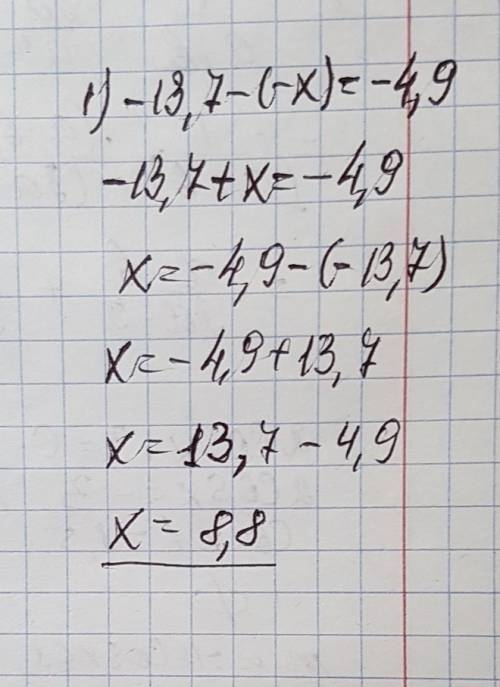 1) -13,7-(-x)=-4,9
-13,7+x=-4,9
x=-4,9-(-13,7)
x=-4,9+13,7
x=13,7-4,9
x=8,8